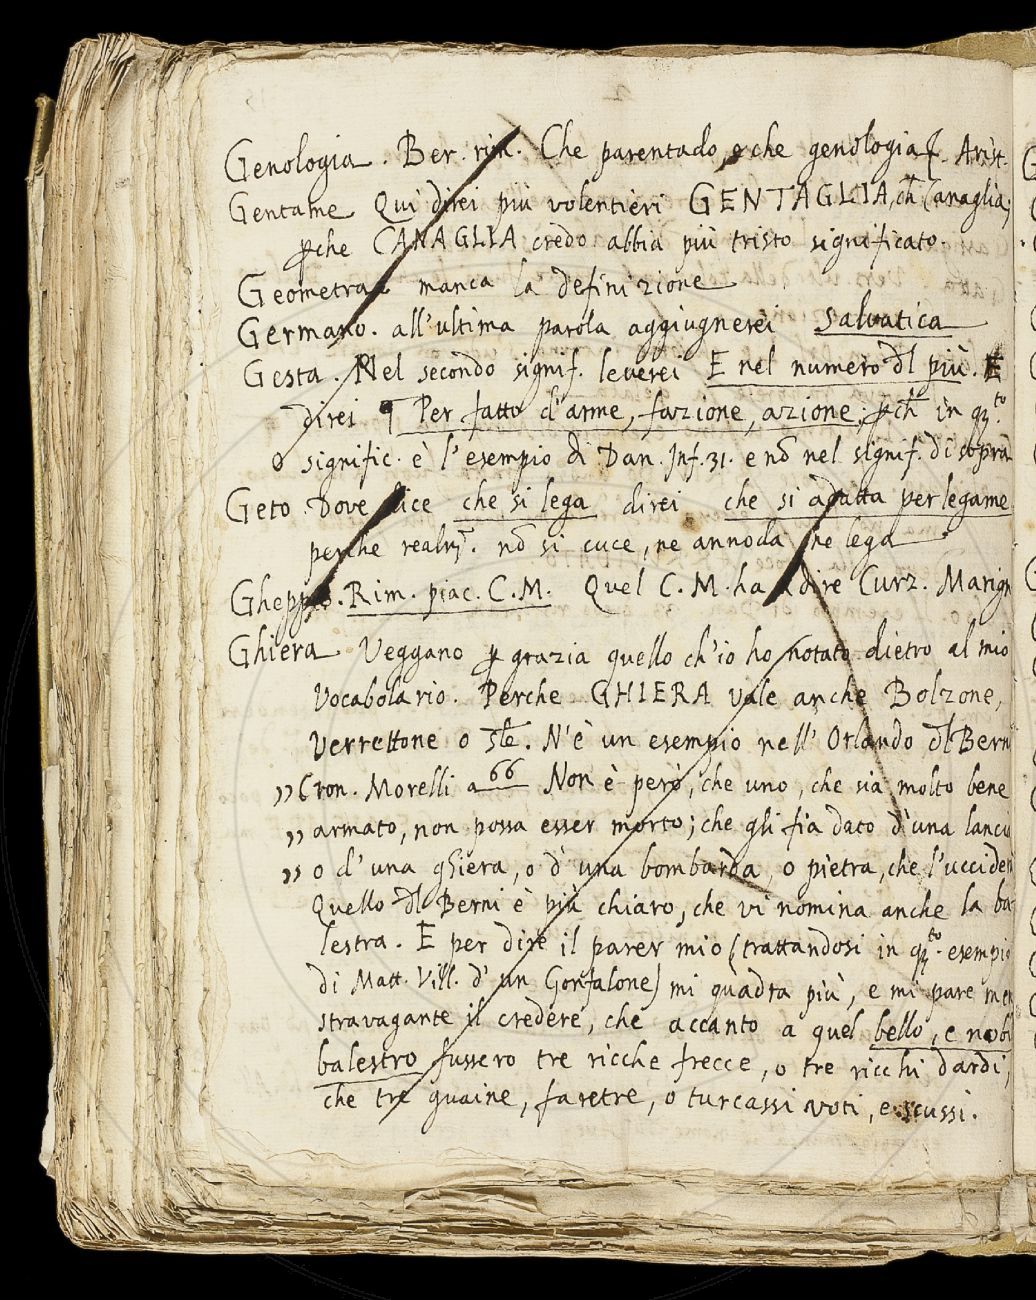 Genologia. Ber. rim. Che parentado, o che genologia. Arist.
Gentame Qui direi più volentieri GENTAGLIA, ch̄ Canaglia,
ꝑche CANAGLIA credo abbia più tristo significato.
Geometra manca la definizione
Germano. all'ultima parola aggiugnerei salvatica
Gesta. Nel secondo signif. leverei E nel numero dl più. E
direi ¶ Per fatto d'arme, fazione, azione; ꝑch̄ in qto
signific. è l'esempio di Dan. Inf. 31. e nō nel signif. di sopra
Geto Dove dice che si lega direi che si adatta per legame
perche realmͭ. nō si cuce, ne annoda ne lega
Gheppio. Rim. piac. C. M. Quel C. M. ha a dire Curz. Marign
Ghiera Veggano ꝑ grazia quello ch'io ho notato dietro al mio
Vocabolario. Perche GHIERA vale anche Bolzone,
Verrettone o sīle. N'è un esempio nell' Orlando dl Bern
„ Cron. Morelli a 66 Non è però, che uno, che sia molto bene
„ armato, non possa esser morto; che gli fia dato d'una lanci
„ o d'una ghiera, o d'una bombarda, o pietra, che l'uccider
Quello dl Berni è più chiaro, che vi nomina anche la ba
lestra. E per dire il parer mio (trattandosi in qto esempio
di Matt. Vill. d'un Gonfalone) mi quadra più, e mi pare men
stravagante il credere, che accanto a quel bello, e nobi
balestro fussero tre ricche frecce, o tre ricchi dardi,
che tre guaine, faretre, o turcassi voti, e scussi.